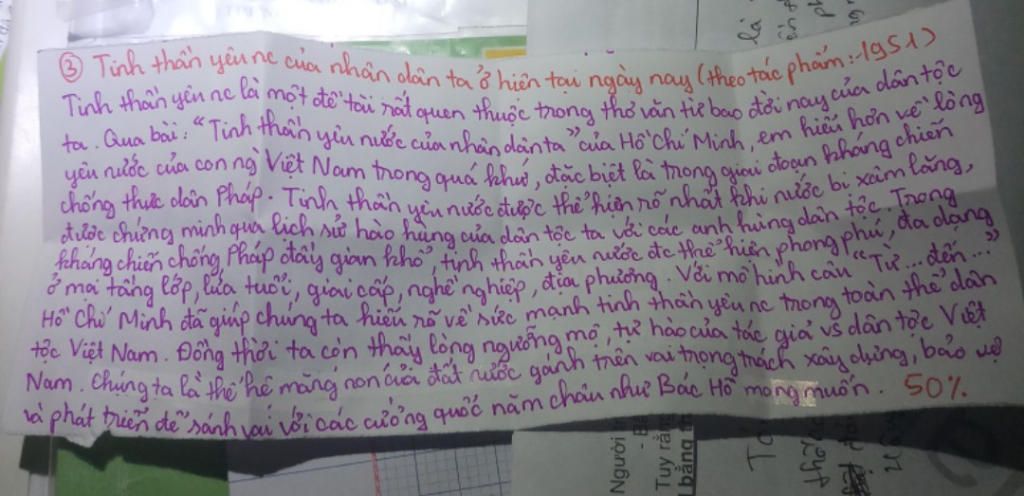 ③ Tinh thần yêu nc của nhân dân ta ở hiện tại ngày nay (theo tác phẩm: 1951)
Tinh thần yêu nc là một đề tài rất quen thuộc trong thơ văn từ bao đời nay của dân tộc
ta. Qua bài: "Tinh thần yêu nước của nhân dân ta" của Hồ Chí Minh, em hiểu hơn về lòng
yêu nước của con ng Việt Nam trong quá khứ, đặc biệt là trong giai đoạn kháng chiến
chống thực dân Pháp. Tinh thần yêu nước được thể hiện rõ nhất khi nước bị xâm lăng,
được chứng minh qua lịch sử hào hùng của dân tộc ta với các anh hùng dân tộc. Trong
kháng chiến chống Pháp đầy gian khổ, tinh thần yêu nước đc thể hiện phong phú, đa dạng
ở mọi tầng lớp, lứa tuổi, giai cấp, nghề nghiệp, địa phương. Với mô hình câu "Từ...đến..."
Hồ Chí Minh đã giúp chúng ta hiểu rõ về sức mạnh tinh thần yêu nc trong toàn thể dân
tộc Việt Nam. Đồng thời ta còn thấy lòng ngưỡng mộ, tự hào của tác giả vs dân tộc Việt
Nam. Chúng ta là thế hệ măng non của đất nước gánh trên vai trọng trách xây dựng, bảo vệ
và phát triển để sánh vai với các cường quốc năm châu như Bác Hồ mong muốn. 50%
là
Người
Tuy rằng
bằng